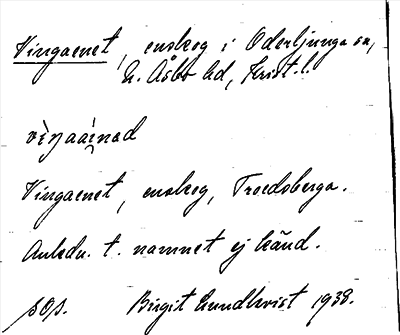 Vingaenet, enskog i Oderljunga sn,
N. Åsbo hd, Krist. l.
vìŋaaìnad
Vingaenet, enskog, Troedsberga.
Anledn. t. namnet ej känd.
sOs. Birgit Lundkvist 1938.